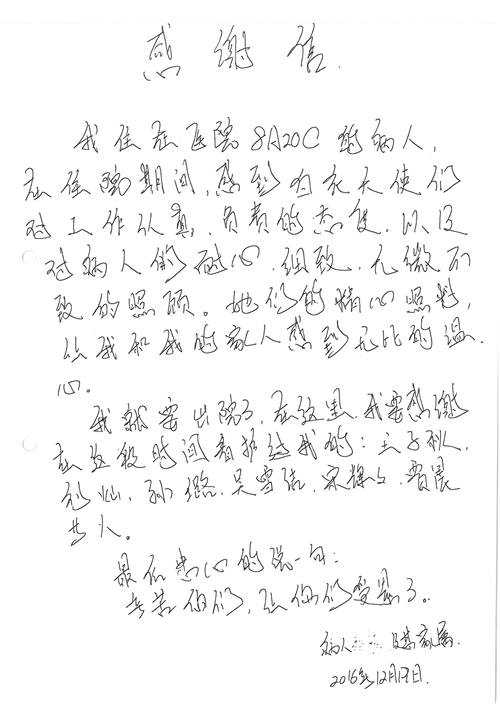 感谢信
我住在医院8A20C的病人，
在住院期间，感到白衣天使们
对工作认真、负责的态度，以及
对病人的耐心、细致、无微不
致的照顾。她们的精心照料，
让我和我的家人感到无比的温
心。
我就要出院了，在这里，我要感谢
在这段时间看护过我的：
孙璐、吴雪洁、
等人。
最后忠心的说一句：
辛苦你们，让你们受累了。
病人 及其家属
2016年12月19日.